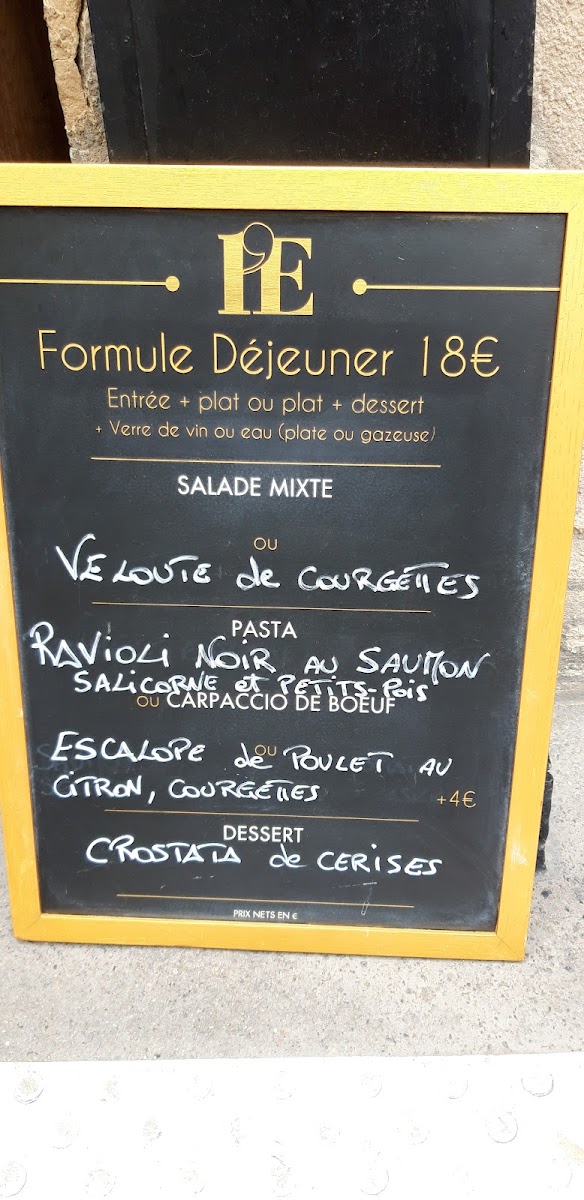 l'E
Formule Déjeuner 18€
Entrée + plat ou plat + dessert
+ Verre de vin ou eau (plate ou gazeuse)
SALADE MIXTE
OU
VELOUTE de COURGETTES
PASTA
RAVIOLI NOIR AU SAUMON
SALICORNE et PETITS-POIS
OU CARPACCIO DE BOEUF
OU
ESCALOPE de POULET AU
CITRON, COURGETTES
+4€
DESSERT
CROSTATA de CERISES
PRIX NETS EN €